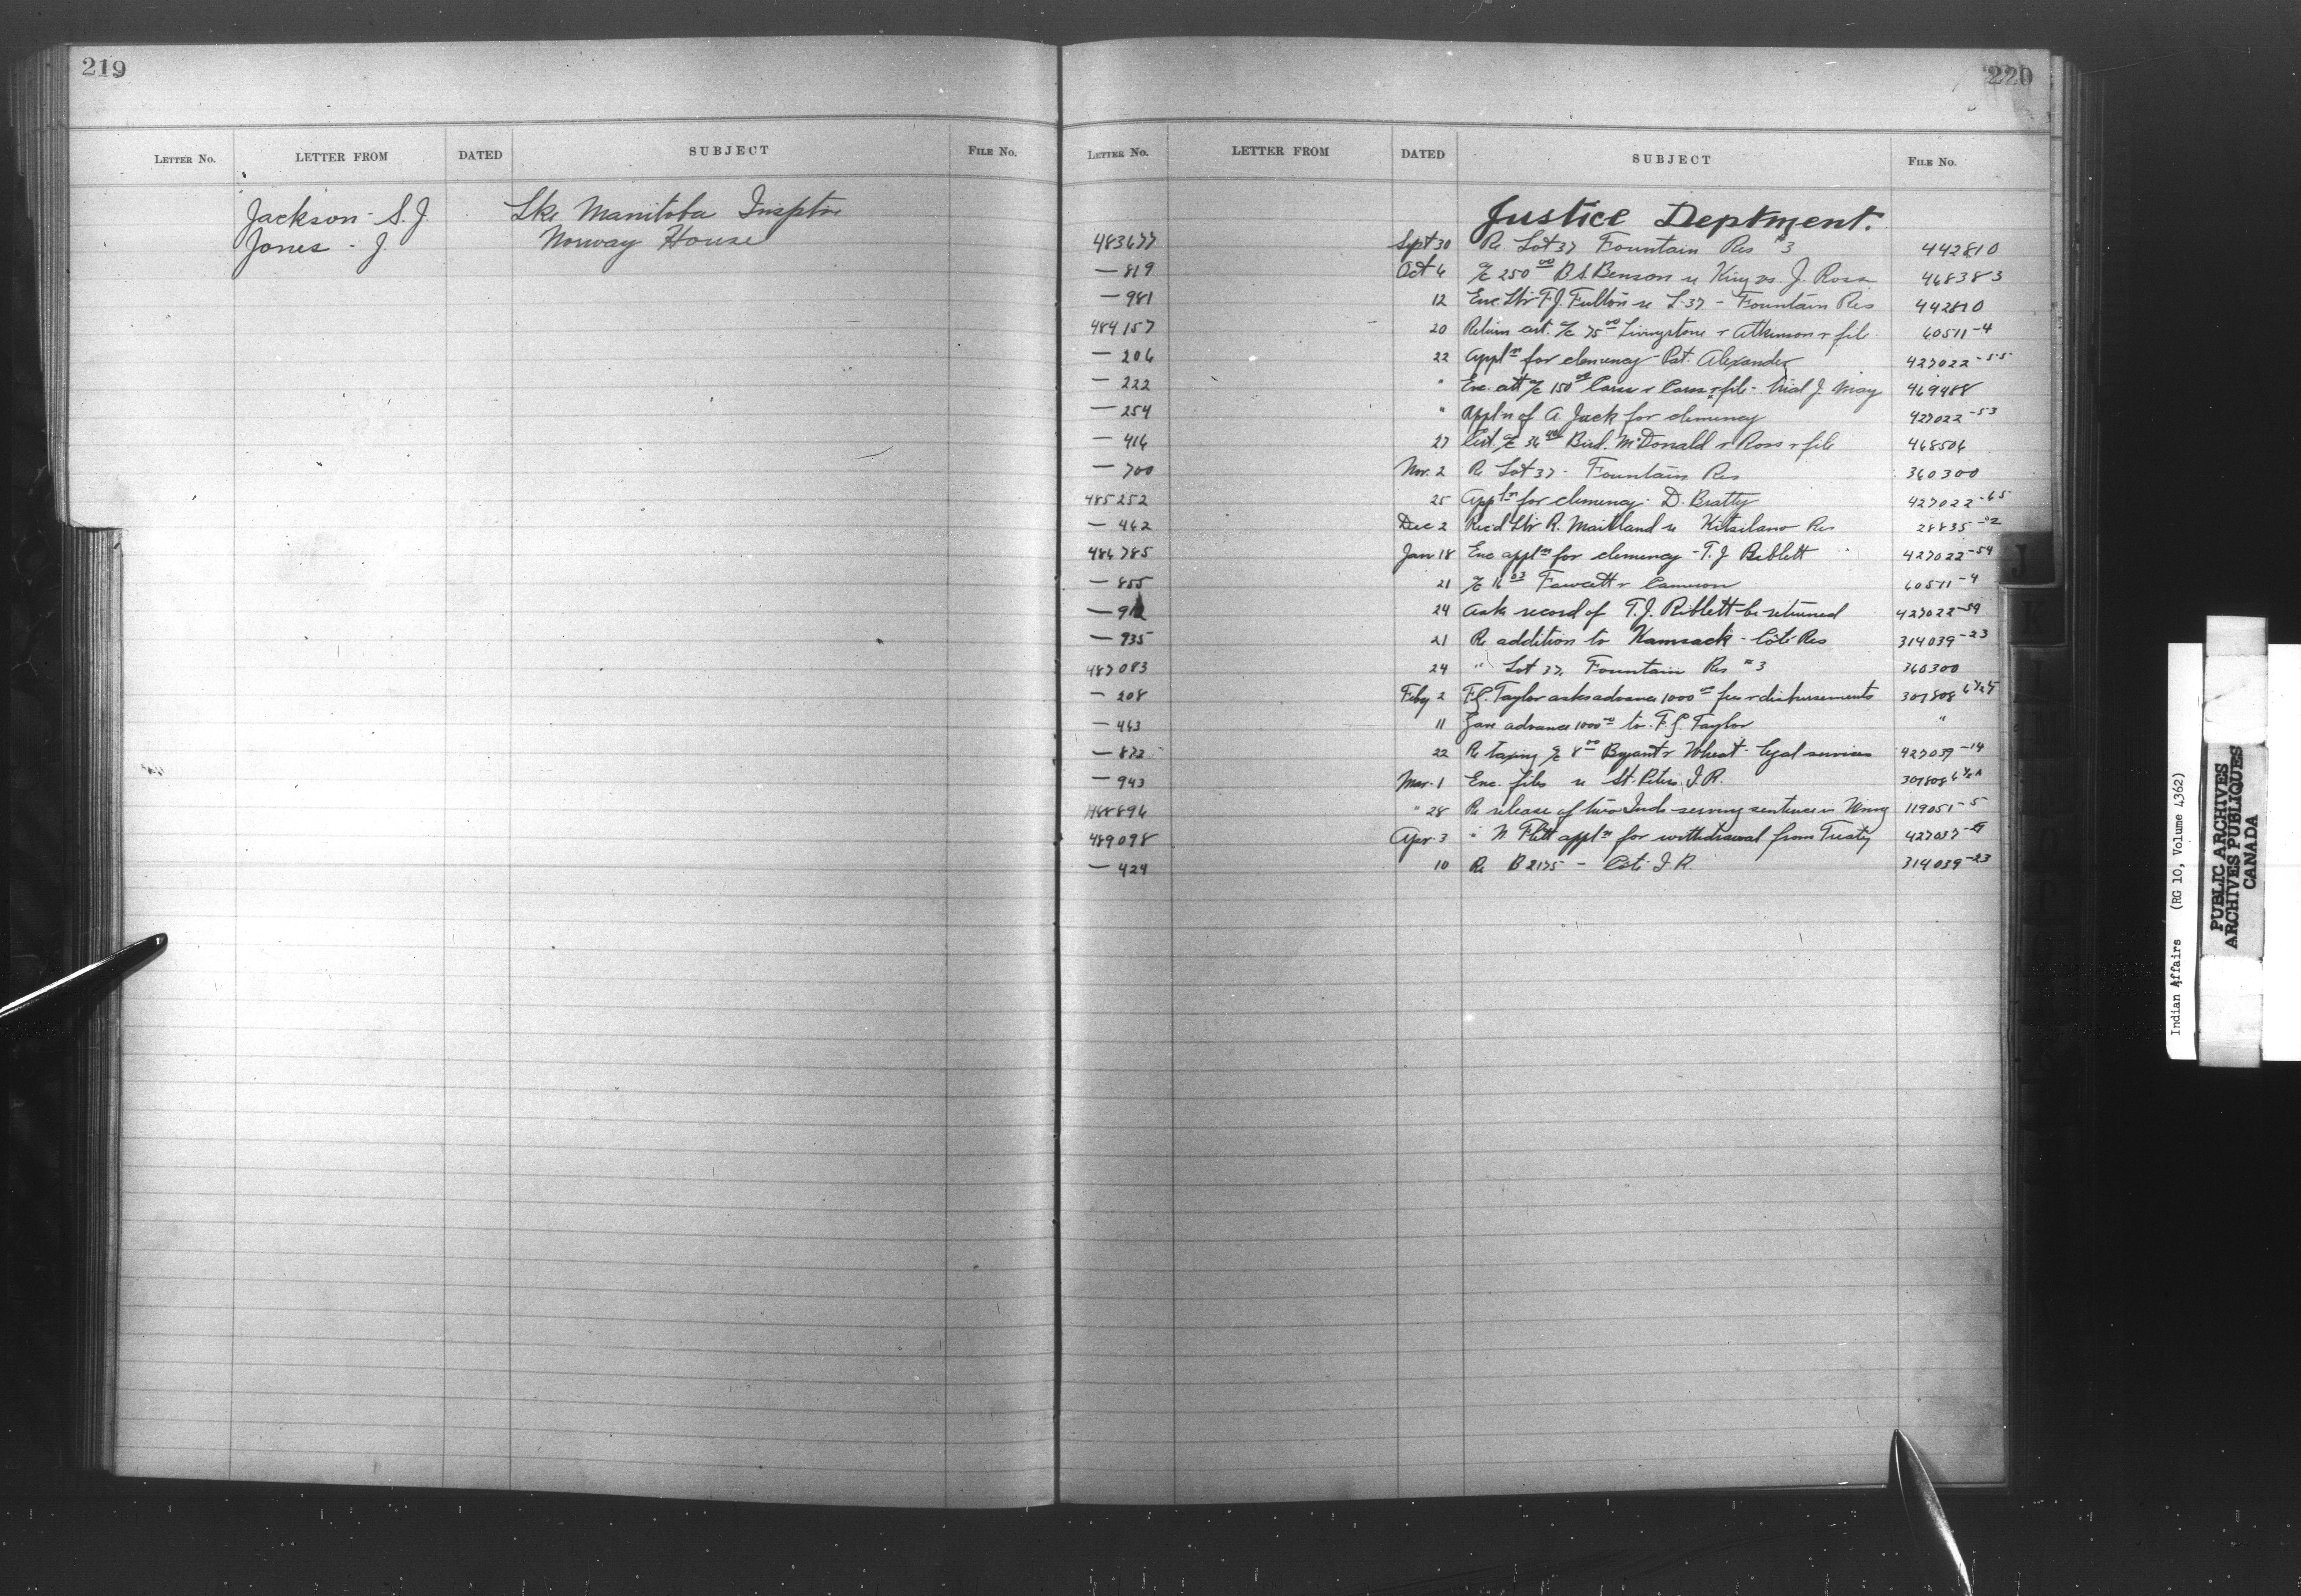 219
LETTER NO. LETTER FROM DATED SUBJECT FILE NO.
Jackson - S. J. Lke Manitoba Insptre
Jones - J. Norway House
220
LETTER NO. LETTER FROM DATED SUBJECT FILE NO.
Justice Deptment.
483677 Sept 30 Re Lot 37 Fountain Res #3 442810
— 819 Oct 6 a/c 250 00 B.S. Benson re King vs. J. Ross 468383
— 981 12 Enc. Ltr F.J. Fulton re L-37 - Fountain Res 442810
484157 20 Return cert. a/c 75 00 Livingstone & Atkinson & file 60511-4
— 206 22 Appln for clemency - Pat. Alexander 427022-55
— 222 " Enc. a/c 150 file - trial J. May 469488
— 254 " Appln of A. Jack for clemency 427022-53
— 416 27 Cert. a/c 36 Bird. McDonald & Ross & file 468506
— 700 Nov. 2 Re Lot 37 - Fountain Res 360300
485252 25 Appln for clemency - D. Beatty 427022-65
— 462 Dec 2 Rec'd Ltr R. Maitland re Kitsilano Res 28835-2
486785 Jan 18 Enc appln for clemency - T. J Riblett 427022-59
— 855 21 a/c 16 03 Fawcett & Cameron 60511-4
— 912 24 Ask record of T.J. Riblett be returned 427022-59
— 935 21 Re addition to Kamsack - Cote Res 314039-23
487083 24 " Lot 37, Fountain Res #3 360300
— 208 Feby 2 F.G. Taylor asks advance 1000 00 fees & disbursements 307808
— 463 11 Gave advance 1000 00 to F.G. Taylor "
— 872 22 Re taxing a/c 8 00 Bryant & Wheat - legal services 427039-14
— 943 Mar. 1 Enc. files re St. Peters I.R. 307808
488896 " 28 Re release of two Inds serving sentence in Winng 119051-5
489098 Apr. 3 " W. Flett appln for withdrawal from Treaty 427037
— 424 10 Re B 2175 - Cote I.R. 314039-23
J
K
Indian Affairs (RG 10, Volume 4362)
PUBLIC ARCHIVES
ARCHIVES PUBLIQUES
CANADA